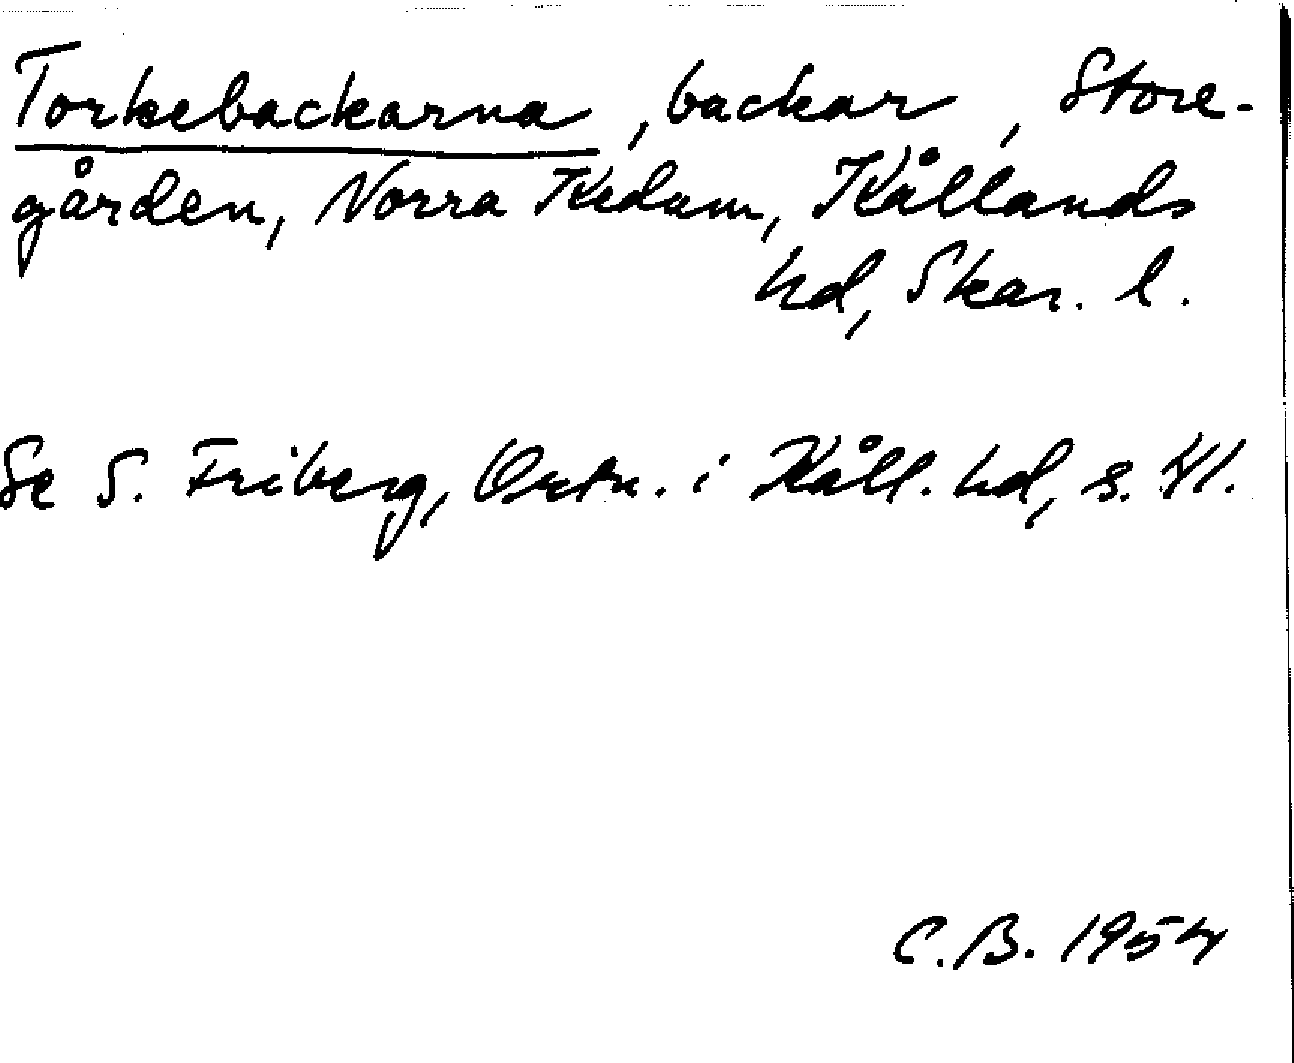 Torkebackarna, backar, Store-
gården, Norra Kedum, Kållands
hd, Skar. l.
Se S. Friberg, Ortn. i Kåll. hd, s. 41.
C.B. 1954